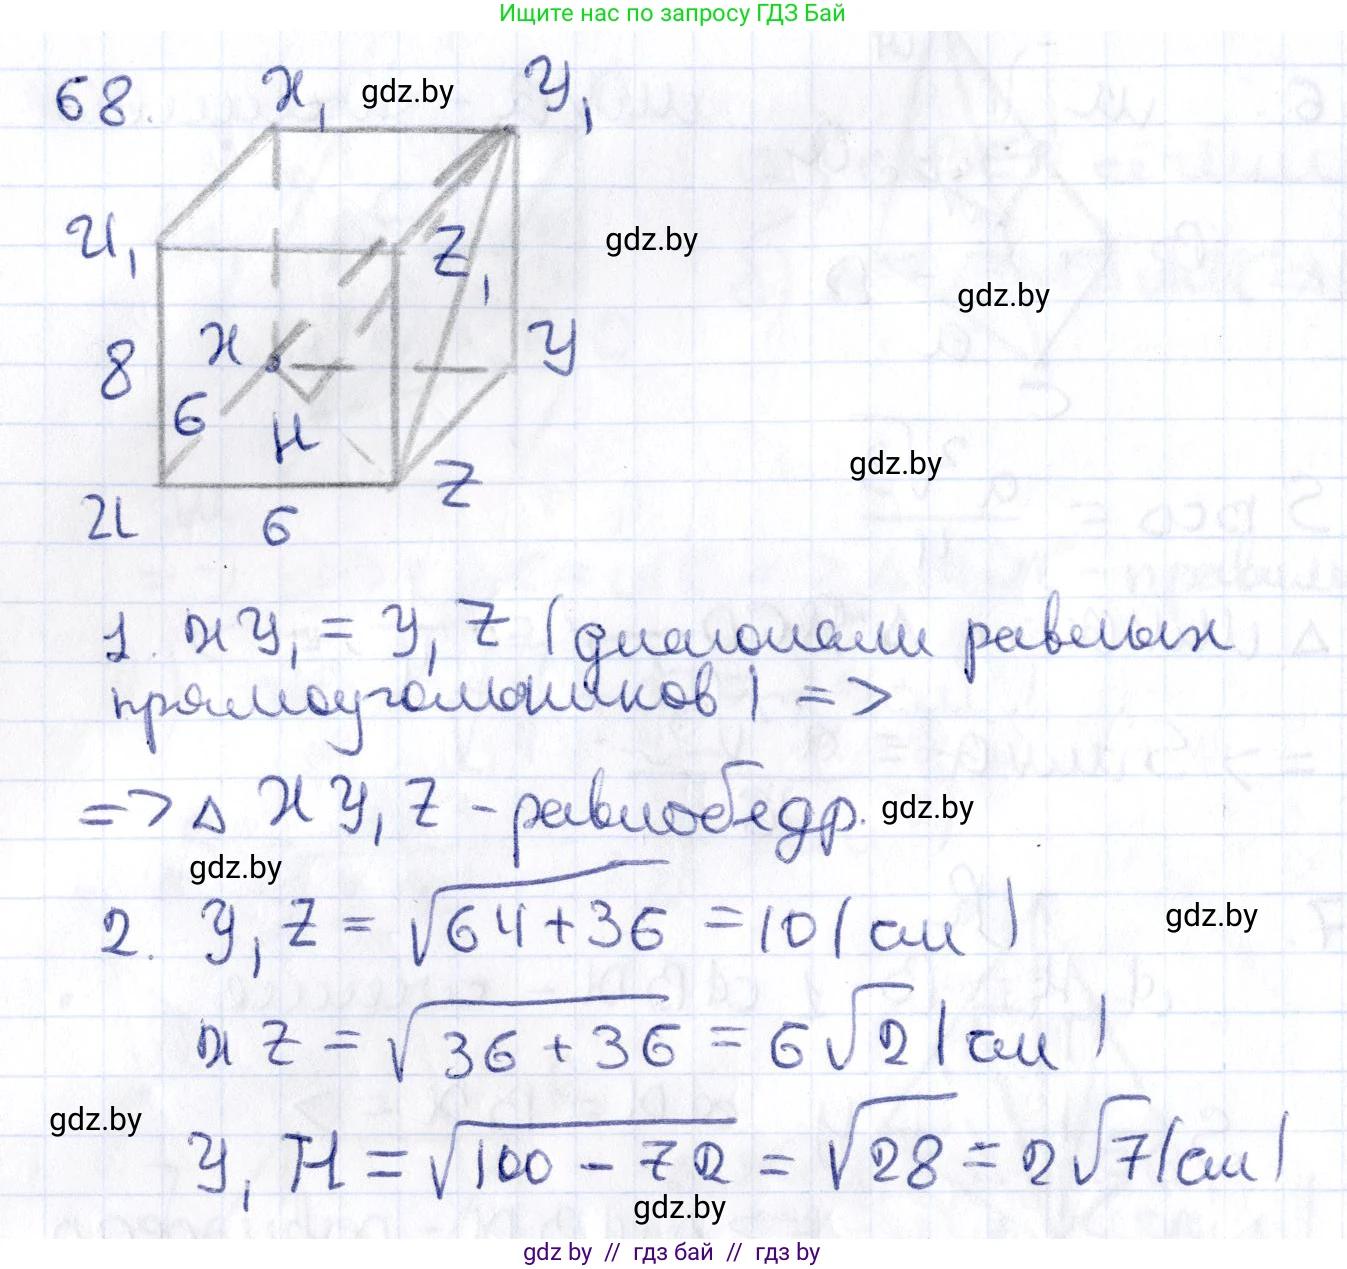 Ищите нас по запросу ГДЗ Бай
68.
X₁
gdz.by
Y₁
И₁
Z₁
gdz.by
gdz.by
X
Y
8
6
H
gdz.by
Z
И
6
1. XY₁ = Y₁Z (диагонали равных
прямоугольников) =>
=> △ XY₁Z - равнобедр.
gdz.by
gdz.by
2. Y₁Z = √64+36 = 10 (см)
gdz.by
XZ = √36+36 = 6√2 (см)
gdz.by
Y₁H = √100-72 = √28 = 2√7 (см)
gdz.by
gdz by // гдз бай // гдз by